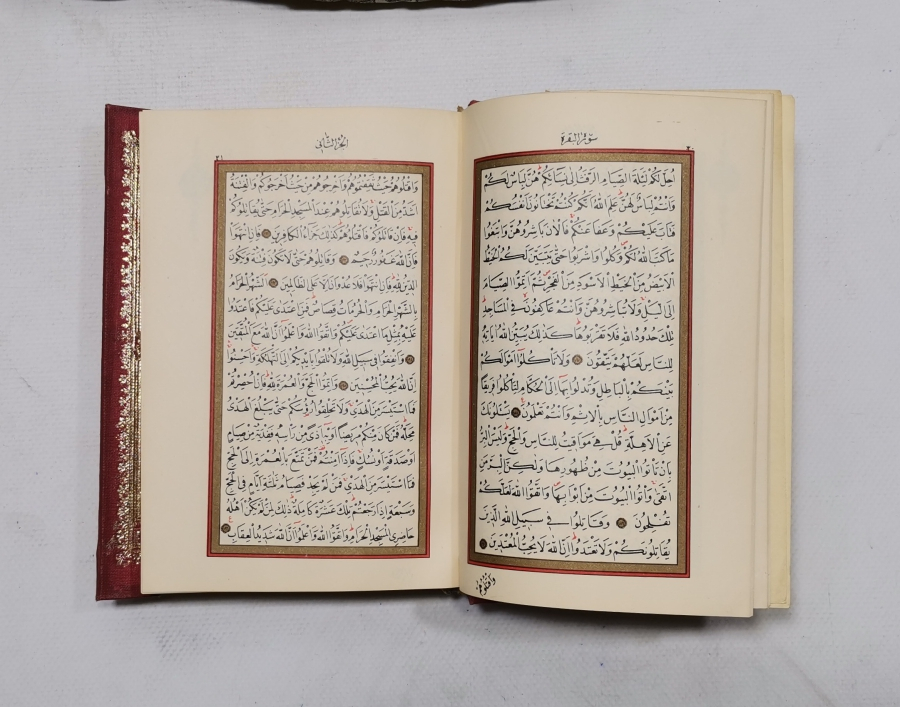 سورة البقرة
اُحِلَّ لَكُمْ لَيْلَةَ الصِّيَامِ الرَّفَثُ اِلٰى نِسَائِكُمْ هُنَّ لِبَاسٌ لَكُمْ
وَاَنْتُمْ لِبَاسٌ لَهُنَّ عَلِمَ اللّٰهُ اَنَّكُمْ كُنْتُمْ تَخْتَانُونَ اَنْفُسَكُمْ
فَتَابَ عَلَيْكُمْ وَعَفَا عَنْكُمْ فَالْاٰنَ بَاشِرُوهُنَّ وَابْتَغُوا
مَا كَتَبَ اللّٰهُ لَكُمْ وَكُلُوا وَاشْرَبُوا حَتّٰى يَتَبَيَّنَ لَكُمُ الْخَيْطُ
الْاَبْيَضُ مِنَ الْخَيْطِ الْاَسْوَدِ مِنَ الْفَجْرِ ثُمَّ اَتِمُّوا الصِّيَامَ
اِلَى الَّيْلِ وَلَا تُبَاشِرُوهُنَّ وَاَنْتُمْ عَاكِفُونَ فِي الْمَسَاجِدِ
تِلْكَ حُدُودُ اللّٰهِ فَلَا تَقْرَبُوهَا كَذٰلِكَ يُبَيِّنُ اللّٰهُ اٰيَاتِهِ
لِلنَّاسِ لَعَلَّهُمْ يَتَّقُونَ وَلَا تَأْكُلُوا اَمْوَالَكُمْ
بَيْنَكُمْ بِالْبَاطِلِ وَتُدْلُوا بِهَا اِلَى الْحُكَّامِ لِتَأْكُلُوا فَرِيقًا
مِنْ اَمْوَالِ النَّاسِ بِالْاِثْمِ وَاَنْتُمْ تَعْلَمُونَ يَسْـَٔلُونَكَ
عَنِ الْاَهِلَّةِ قُلْ هِيَ مَوَاقِيتُ لِلنَّاسِ وَالْحَجِّ وَلَيْسَ الْبِرُّ
بِاَنْ تَأْتُوا الْبُيُوتَ مِنْ ظُهُورِهَا وَلٰكِنَّ الْبِرَّ مَنِ
اتَّقٰى وَأْتُوا الْبُيُوتَ مِنْ اَبْوَابِهَا وَاتَّقُوا اللّٰهَ لَعَلَّكُمْ
تُفْلِحُونَ وَقَاتِلُوا فِي سَبِيلِ اللّٰهِ الَّذِينَ
يُقَاتِلُونَكُمْ وَلَا تَعْتَدُوا اِنَّ اللّٰهَ لَا يُحِبُّ الْمُعْتَدِينَ
واقتلوهم
الجزء الثاني
وَاقْتُلُوهُمْ حَيْثُ ثَقِفْتُمُوهُمْ وَاَخْرِجُوهُمْ مِنْ حَيْثُ اَخْرَجُوكُمْ وَالْفِتْنَةُ
اَشَدُّ مِنَ الْقَتْلِ وَلَا تُقَاتِلُوهُمْ عِنْدَ الْمَسْجِدِ الْحَرَامِ حَتّٰى يُقَاتِلُوكُمْ
فِيهِ فَاِنْ قَاتَلُوكُمْ فَاقْتُلُوهُمْ كَذٰلِكَ جَزَاءُ الْكَافِرِينَ فَاِنِ انْتَهَوْا
فَاِنَّ اللّٰهَ غَفُورٌ رَحِيمٌ وَقَاتِلُوهُمْ حَتّٰى لَا تَكُونَ فِتْنَةٌ وَيَكُونَ
الدِّينُ لِلّٰهِ فَاِنِ انْتَهَوْا فَلَا عُدْوَانَ اِلَّا عَلَى الظَّالِمِينَ اَلشَّهْرُ الْحَرَامُ
بِالشَّهْرِ الْحَرَامِ وَالْحُرُمَاتُ قِصَاصٌ فَمَنِ اعْتَدٰى عَلَيْكُمْ فَاعْتَدُوا
عَلَيْهِ بِمِثْلِ مَا اعْتَدٰى عَلَيْكُمْ وَاتَّقُوا اللّٰهَ وَاعْلَمُوا اَنَّ اللّٰهَ مَعَ الْمُتَّقِينَ
وَاَنْفِقُوا فِي سَبِيلِ اللّٰهِ وَلَا تُلْقُوا بِاَيْدِيكُمْ اِلَى التَّهْلُكَةِ وَاَحْسِنُوا
اِنَّ اللّٰهَ يُحِبُّ الْمُحْسِنِينَ وَاَتِمُّوا الْحَجَّ وَالْعُمْرَةَ لِلّٰهِ فَاِنْ اُحْصِرْتُمْ
فَمَا اسْتَيْسَرَ مِنَ الْهَدْيِ وَلَا تَحْلِقُوا رُؤُسَكُمْ حَتّٰى يَبْلُغَ الْهَدْيُ
مَحِلَّهُ فَمَنْ كَانَ مِنْكُمْ مَرِيضًا اَوْ بِهِ اَذًى مِنْ رَأْسِهِ فَفِدْيَةٌ مِنْ صِيَامٍ
اَوْ صَدَقَةٍ اَوْ نُسُكٍ فَاِذَا اَمِنْتُمْ فَمَنْ تَمَتَّعَ بِالْعُمْرَةِ اِلَى الْحَجِّ
فَمَا اسْتَيْسَرَ مِنَ الْهَدْيِ فَمَنْ لَمْ يَجِدْ فَصِيَامُ ثَلٰثَةِ اَيَّامٍ فِي الْحَجِّ
وَسَبْعَةٍ اِذَا رَجَعْتُمْ تِلْكَ عَشَرَةٌ كَامِلَةٌ ذٰلِكَ لِمَنْ لَمْ يَكُنْ اَهْلُهُ
حَاضِرِي الْمَسْجِدِ الْحَرَامِ وَاتَّقُوا اللّٰهَ وَاعْلَمُوا اَنَّ اللّٰهَ شَدِيدُ الْعِقَابِ